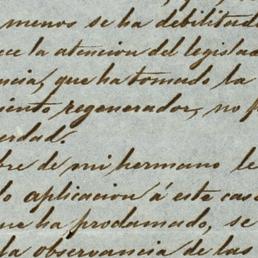 menos se ha debilitado
ce la atencion del legislad
ncia, que ha tomado la
iento regenerador, no p
erdad.
bre de mi hermano le
lo aplicacion á este cas
ue ha proclamado, se
la observancia de las